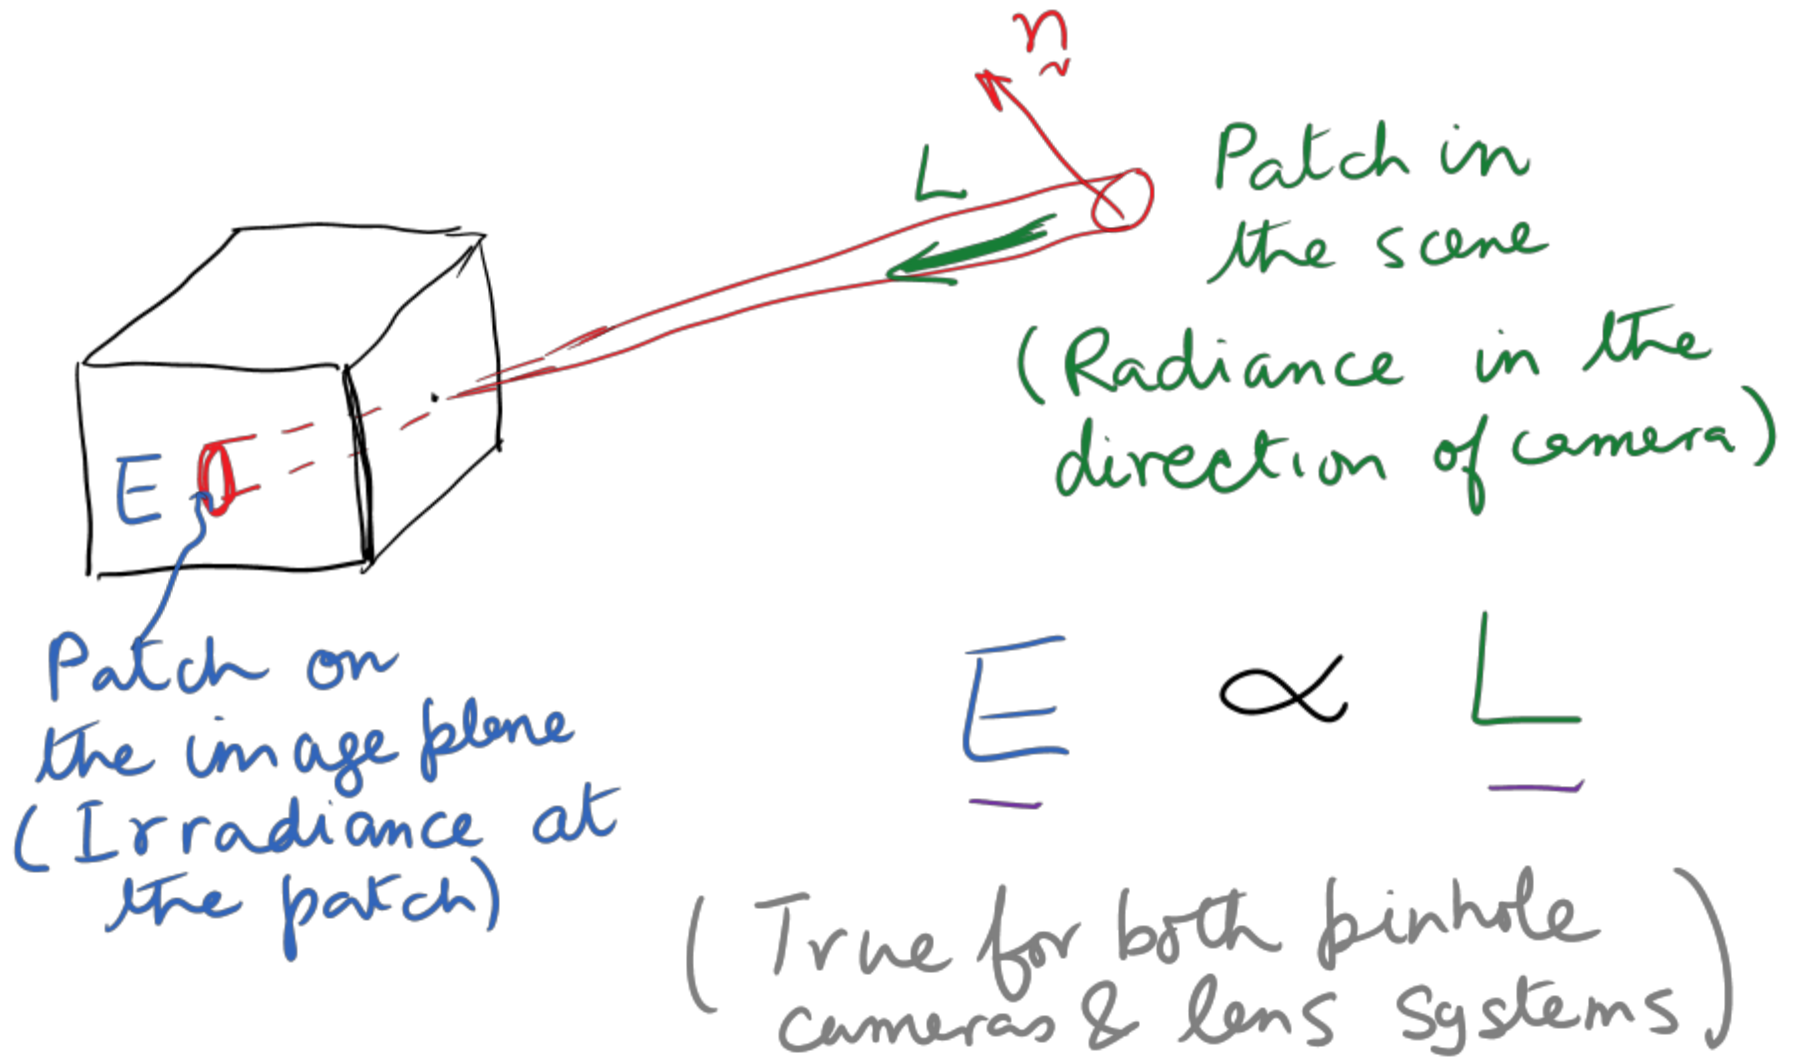 n
~
L
Patch in
the scene
(Radiance in the
direction of camera)
E
Patch on
the image plane
(Irradiance at
the patch)
E ∝ L
(True for both pinhole
cameras & lens systems)